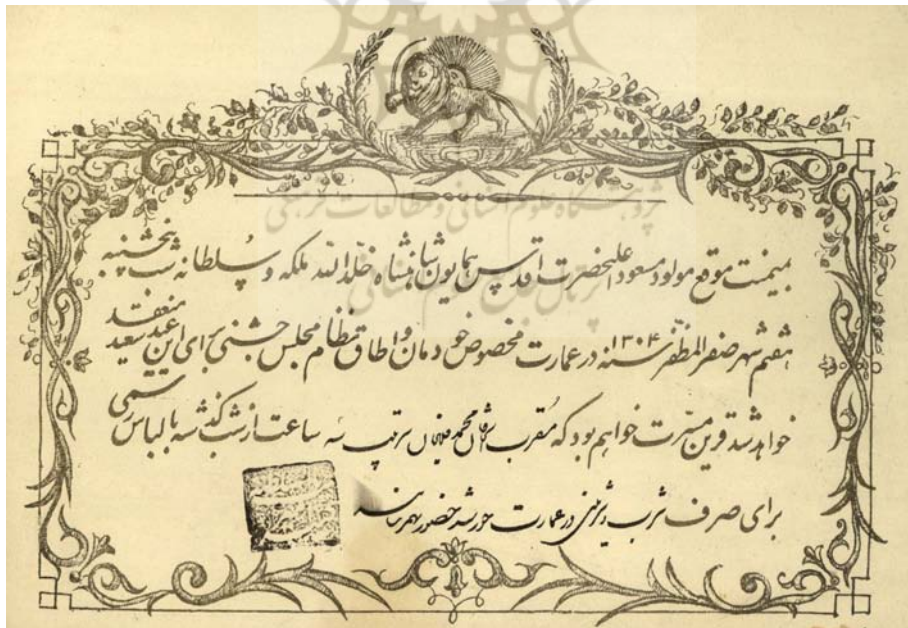 پژوهشگاه علوم انسانی و مطالعات فرهنگی
بمیمنت موقع مولود مسعود اعلیحضرت اقدس همایون شاهنشاه خلدالله ملکه و سلطانه شب پنجشنبه
هفتم شهر صفر المظفر سنه ۱۳۰۴ در عمارت مخصوص خودمان و اطاق نظام مجلس جشنی برای این عید سعید منعقد
خواهد شد قرین مسرت خواهیم بود که مقرب الخاقان محمد سرتیپ سه ساعت از شب گذشته با لباس رسمی
برای صرف شربت و شیرینی در عمارت خورشید حضور بهم رسانند